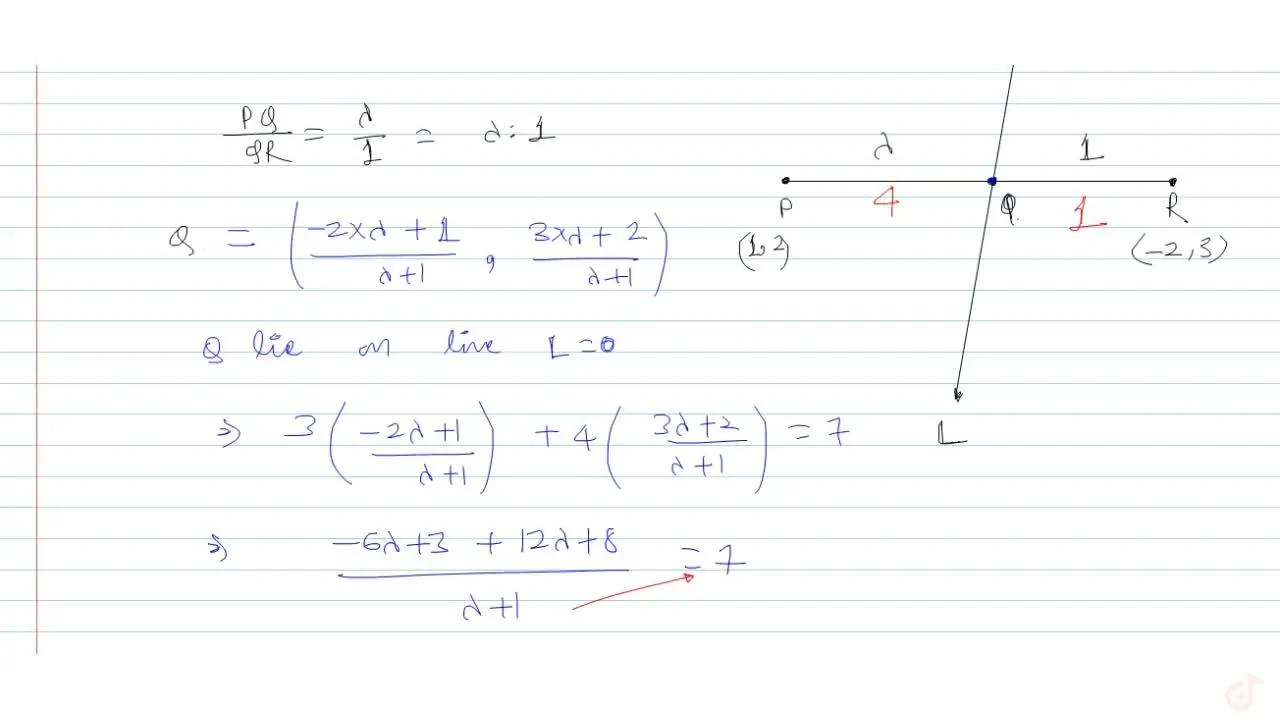 PQ/QR = λ/1 = λ : 1
Q = ( (-2×λ + 1)/(λ+1) , (3×λ + 2)/(λ+1) )
Q lie on line L = 0
⇒ 3( (-2λ+1)/(λ+1) ) + 4( (3λ+2)/(λ+1) ) = 7
⇒ (-6λ+3 + 12λ+8)/(λ+1) = 7
λ 1
4 1
P Q R
(1,2) (-2,3)
L